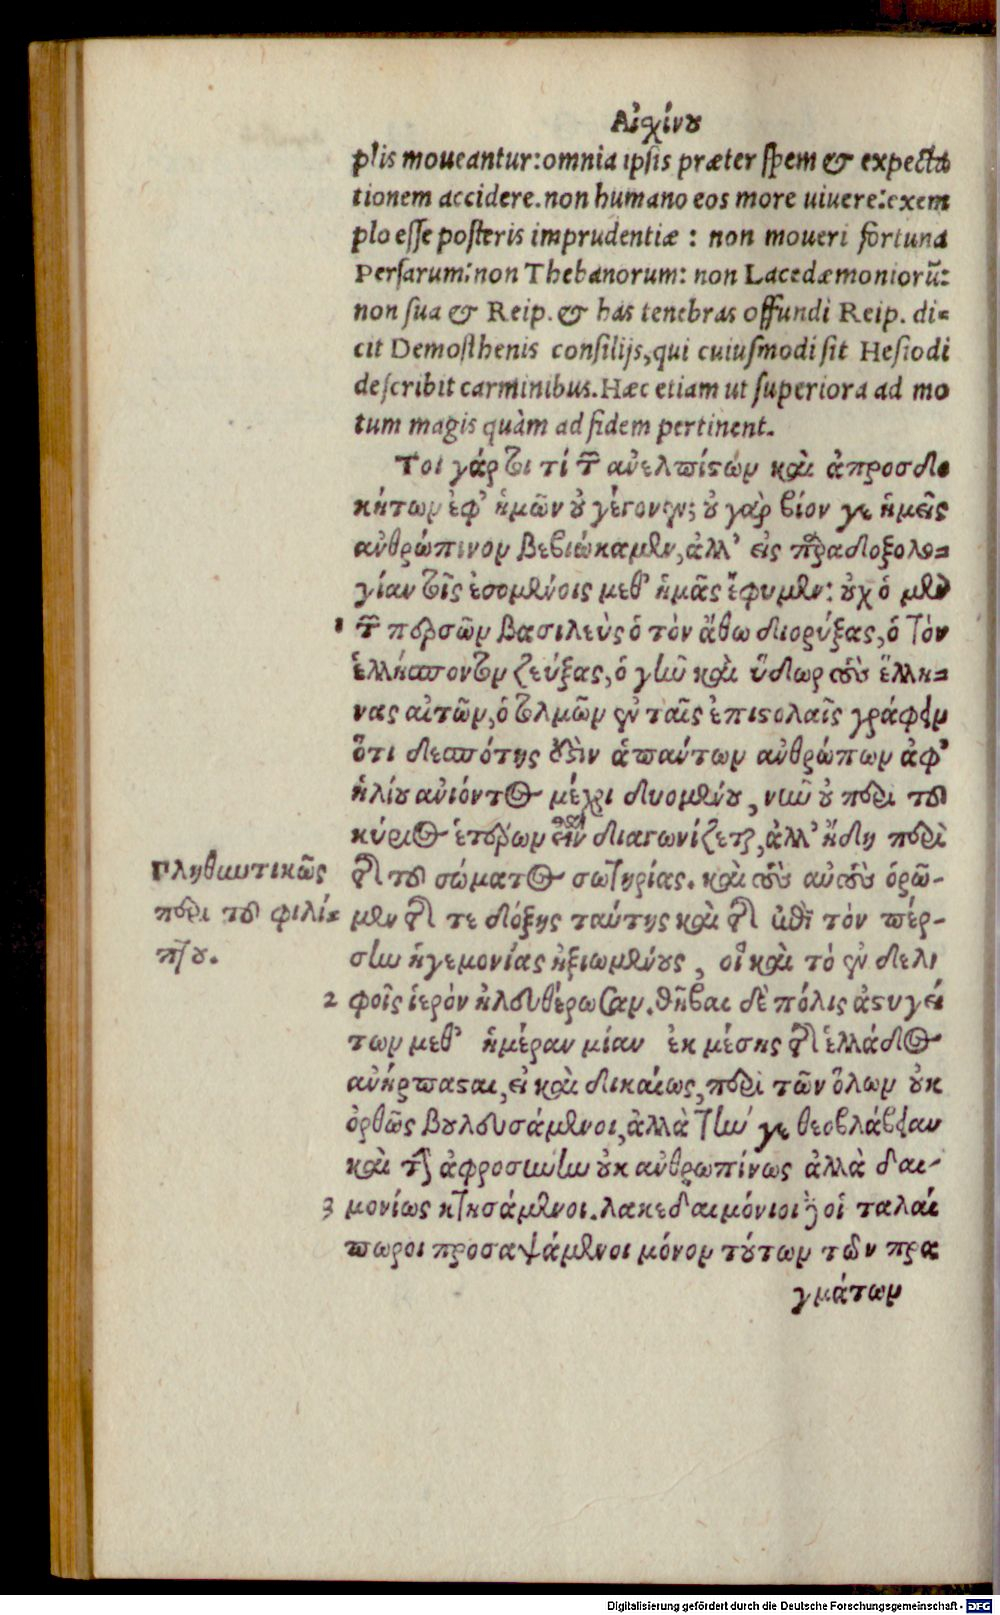 Αἰσχίνου
plis moueantur: omnia ipsis præter spem & expecta
tionem accidere. non humano eos more uiuere: exem
plo esse posteris imprudentiæ : non moueri fortuna
Persarum: non Thebanorum: non Lacedæmoniorū:
non sua & Reip. & has tenebras offundi Reip. di=
cit Demosthenis consilijs, qui cuiusmodi sit Hesiodi
describit carminibus. Hæc etiam ut superiora ad mo
tum magis quàm ad fidem pertinent.
Τοι γάρτοι τί τῶν ἀνελπίστων καὶ ἀπροσδο
κήτων ἐφ’ ἡμῶν οὐ γέγονεν; οὐ γὰρ βίον γε ἡμεῖς
ἀνθρώπινον βεβιώκαμεν, ἀλλ’ εἰς παραδοξολο=
γίαν τοῖς ἐσομένοις μεθ’ ἡμᾶς ἔφυμεν: οὐχ ὁ μὲν
1 τῶν περσῶν βασιλεὺς ὁ τὸν ἄθω διορύξας, ὁ τὸν
ἑλλήσποντον ζεύξας, ὁ γῆν καὶ ὕδωρ τοὺς ἕλλη=
νας αἰτῶν, ὁ τολμῶν ἐν ταῖς ἐπιστολαῖς γράφειν
ὅτι δεσπότης ἐστὶν ἁπάντων ἀνθρώπων ἀφ’
ἡλίου ἀνιόντος μέχρι δυομένου, νῦν οὐ περὶ τοῦ
κύριος ἑτέρων εἶναι διαγωνίζεται, ἀλλ’ ἤδη περὶ
Πληθυντικῶς
περὶ τοῦ φιλίπ=
που.
τῆς τοῦ σώματος σωτηρίας. καὶ τοὺς αὐτοὺς ὁρῶ-
μεν τῆς τε δόξης ταύτης καὶ τῆς ἐπὶ τὸν πέρ-
σην ἡγεμονίας ἠξιωμένους, οἳ καὶ τὸ ἐν δελ
2 φοῖς ἱερὸν ἠλευθέρωσαν. θῆβαι δὲ πόλις ἀστυγεί
των μεθ’ ἡμέραν μίαν ἐκ μέσης τῆς ἑλλάδος
ἀνήρπασται, εἰ καὶ δικαίως, περὶ τῶν ὅλων οὐκ
ὀρθῶς βουλευσάμενοι, ἀλλὰ τήν γε θεοβλάβειαν
καὶ τὴν ἀφροσύνην οὐκ ἀνθρωπίνως ἀλλὰ δαι-
3 μονίως κτησάμενοι. λακεδαιμόνιοι δὲ οἱ ταλαί
πωροι προσαψάμενοι μόνον τούτων τῶν πρα
γμάτων
Digitalisierung gefördert durch die Deutsche Forschungsgemeinschaft - DFG